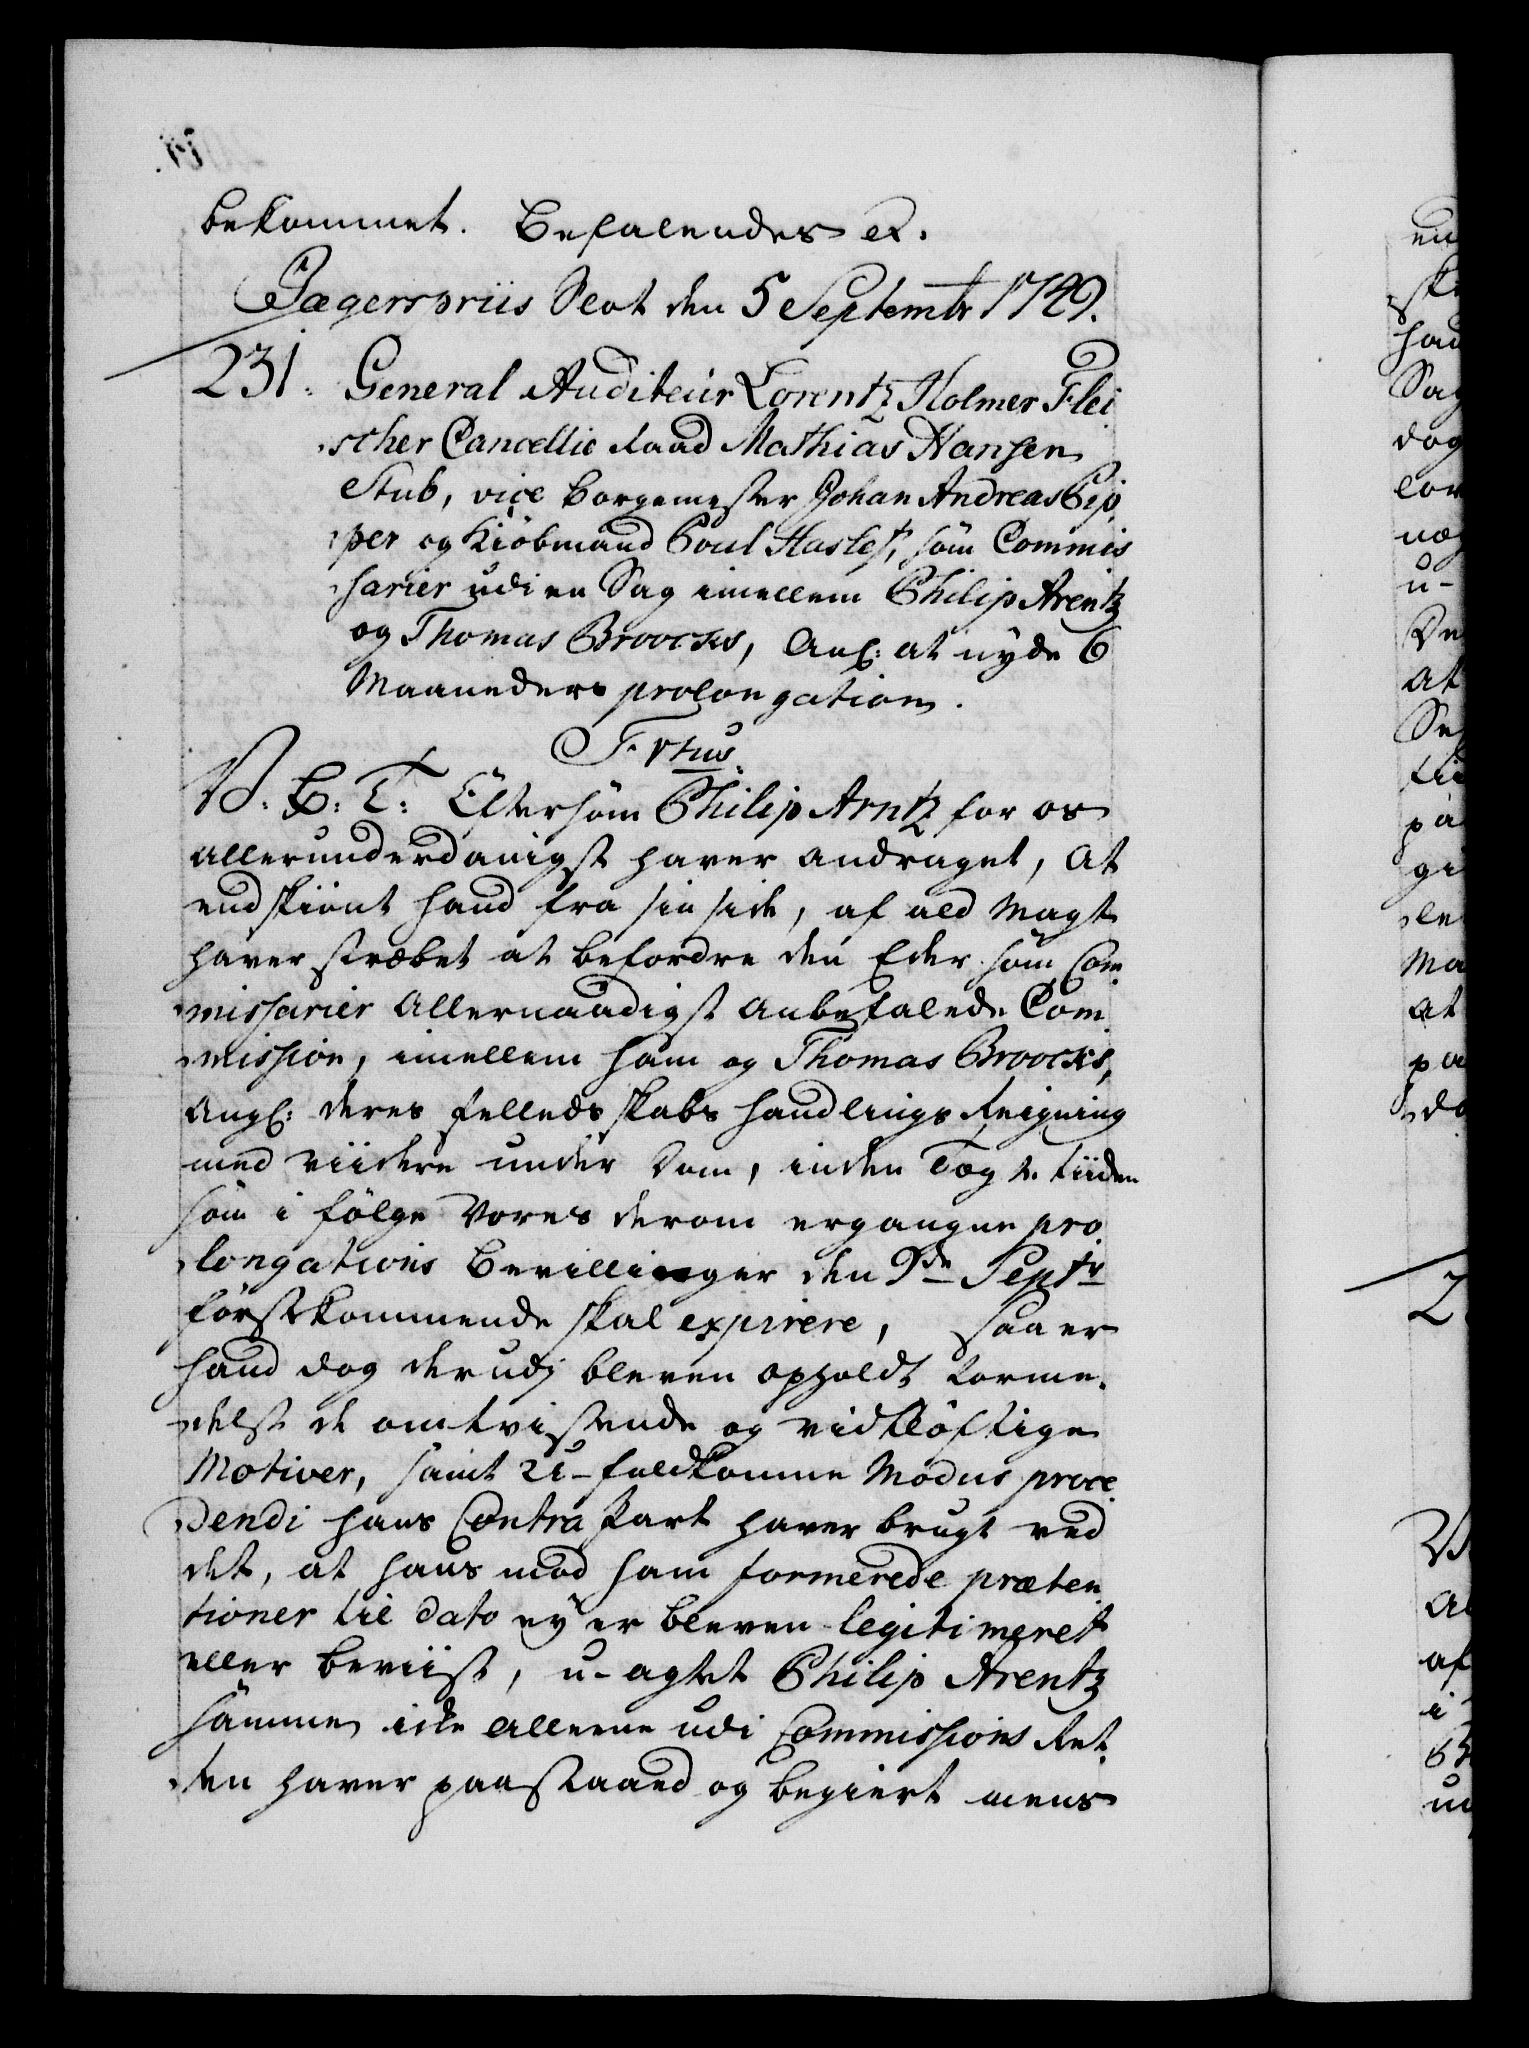 bekommet. Befalendes etc.
Jægerspriis Slot den 5 Septembr 1749.
231. General Auditeur Lorentz Holmer Flei
scher Cancellie Raad Mathias Hansen
Stub, vice Borgemester Johan Andreas Pip
per og Kiöbmand Poul Hasles, som Commis
sarier udi en Sag imellem Philip Arentz
og Thomas Broocks, Anl: at nyde 6
Maaneders prolongation.
F. 5tus.
V. G. T: Eftersom Philip Arntz for os
allerunderdanigst haver andraget, At
endskiönt hand fra sin side, af ald Magt
haver stræbet at befordre den Eder som Com
missarier Allernaadigst Anbefalede Com
mission, imellem ham og Thomas Broocks,
Angl: deres Fælleds skabs handlings Reigning
med viidere under Dom, inden Tægte Tiiden
som i fölge Vores derom ergangne pro
longations Bevillinger den 9de Septr
förstkommende skal expirere, saa er
hand dog derudj bleven opholdt forme
delst de omtvistende og vidtlöftige
Motiver, samt U-fuldkomne Modus proce
dendi hans Contra Part haver brugt ved
det, at hans mod ham formerede præten
tioner til dato ey er bleven legitimeret
eller beviist, u-agtet Philip Arentz
samme icke allene udi Commissions Ret
ten haver paastaaed og begiert mens